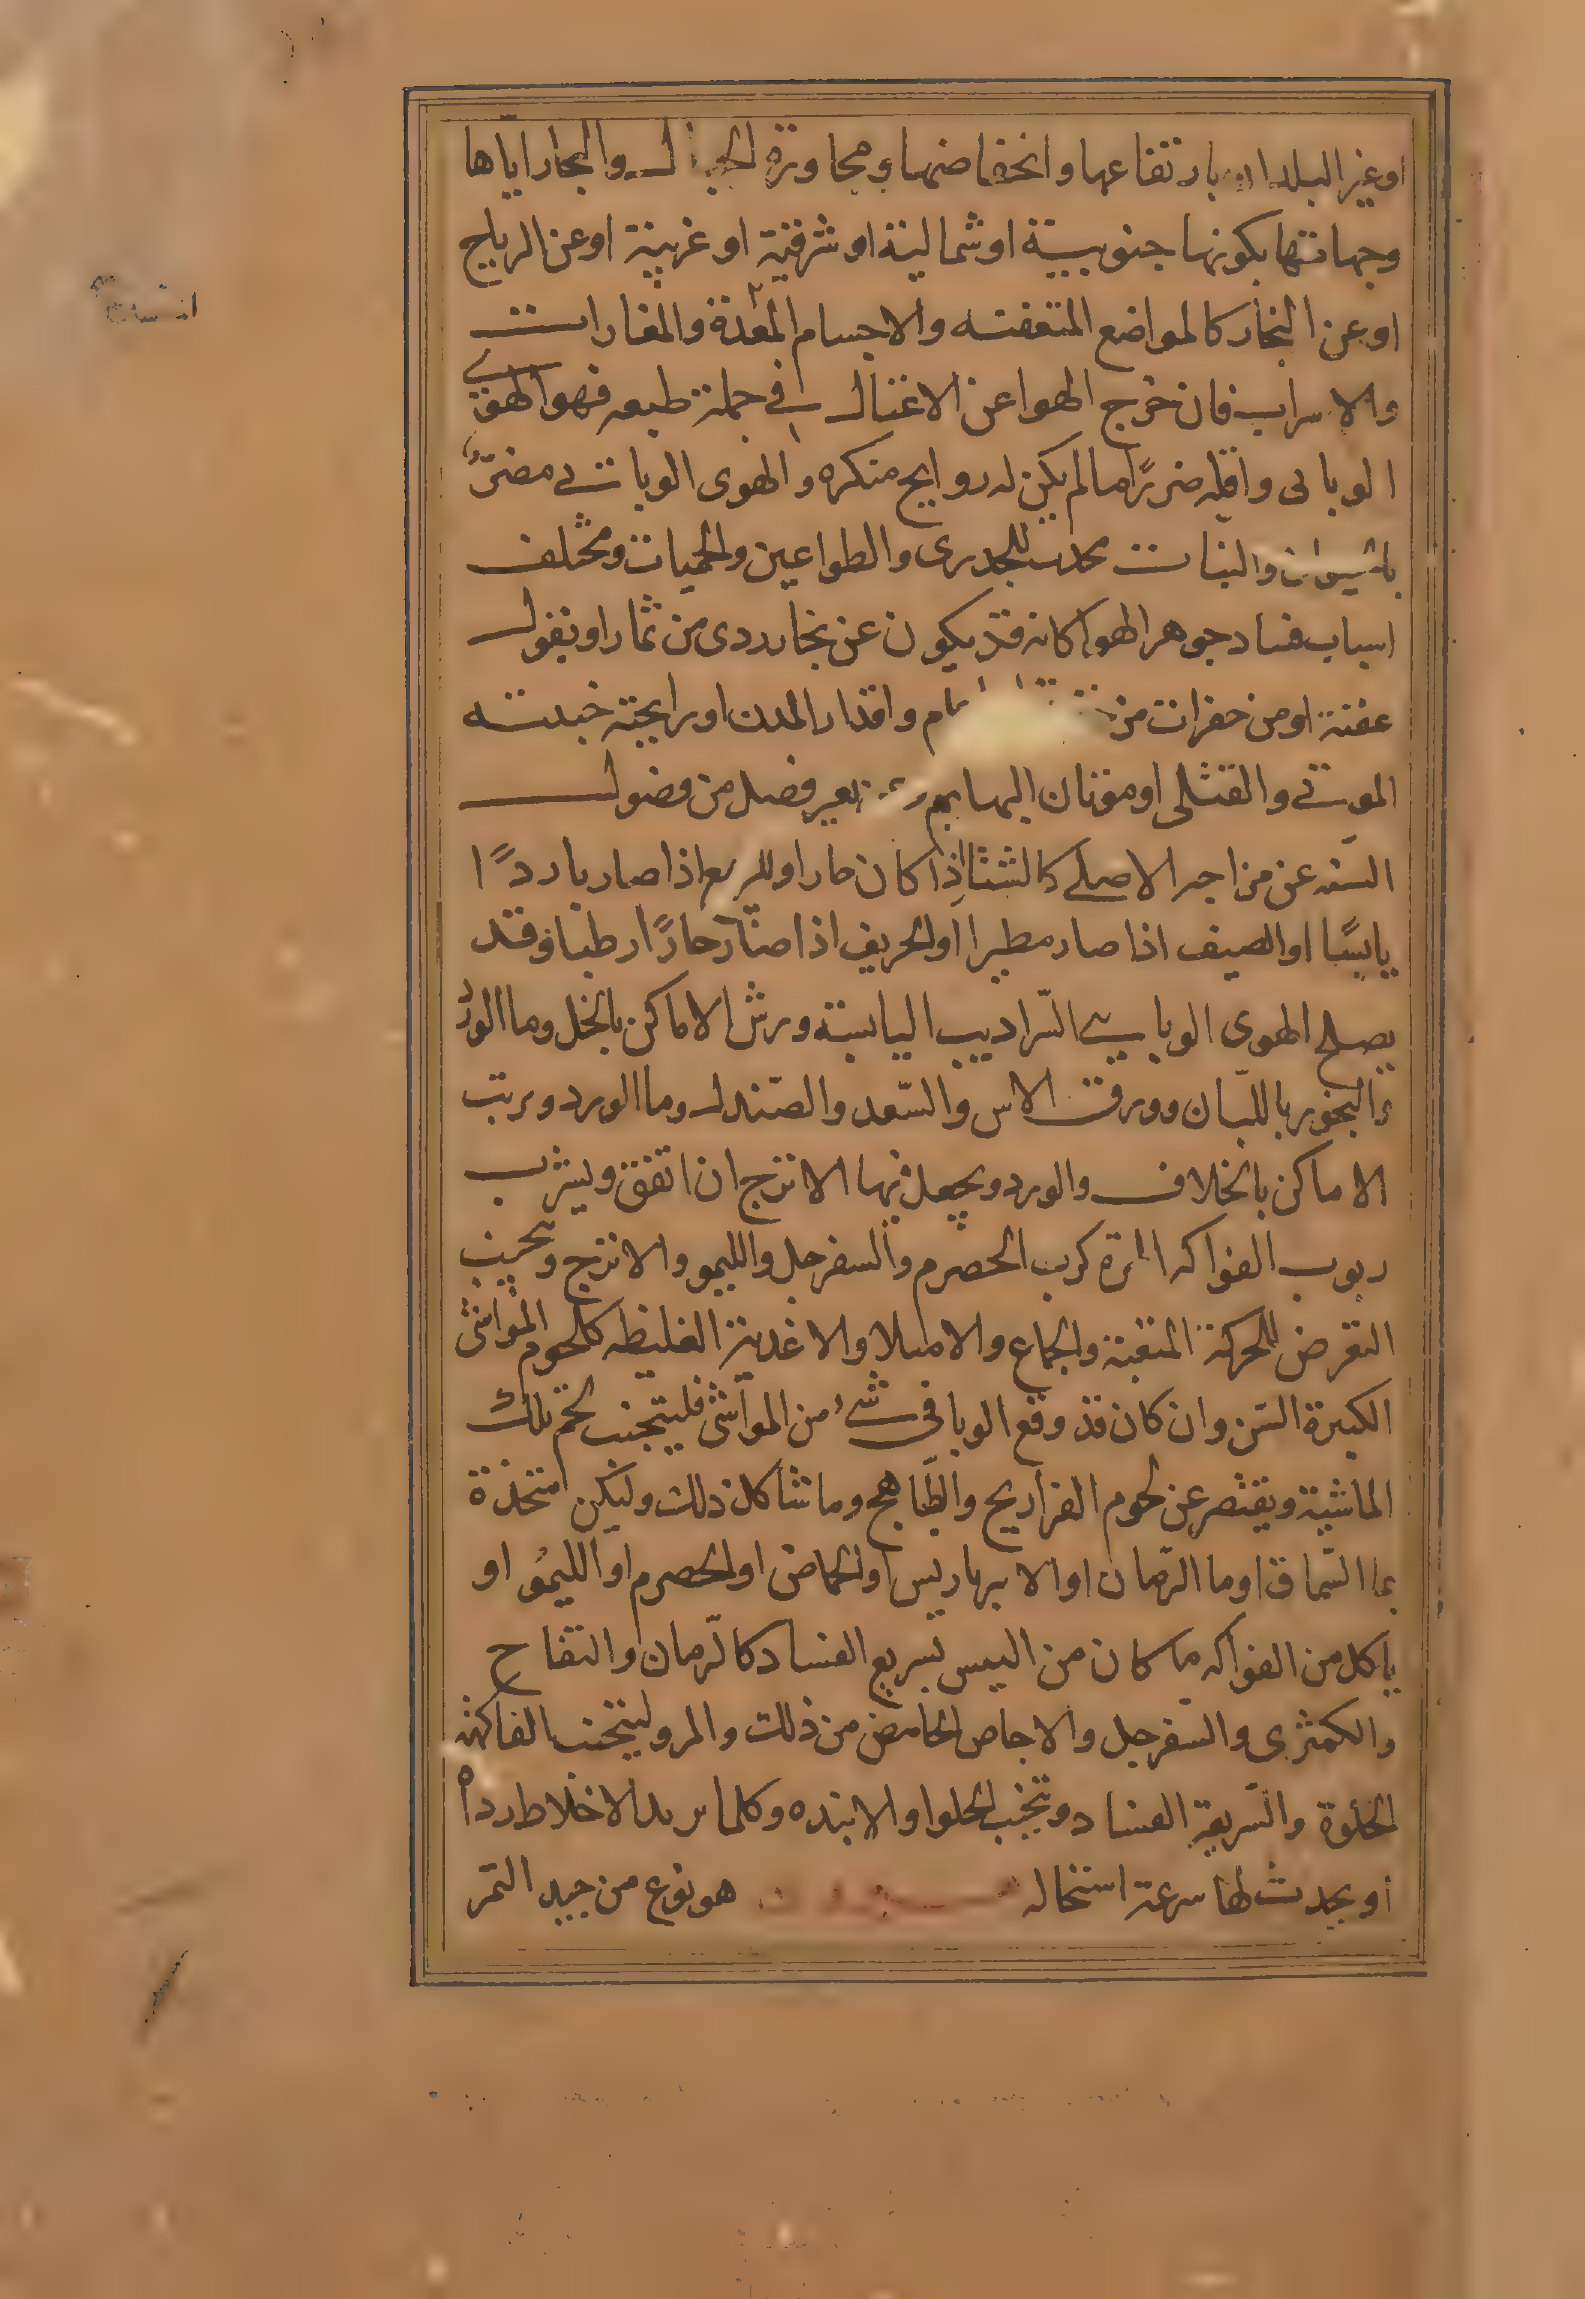 او عن البلدان بارتفاعها وانخفاضها ومجاورة الجبال والبحار اياها
وجهاتها بكونها جنوبية او شمالية او شرقية او غربية او عن الرياح
او عن البخار كالمواضع المتعفنه والاجسام المعدة والمغارات
والاسراب فان خرج الهوا عن الاعتدال في جملة طبعه فهو الهوى
الوبائي واقله ضررًا ما لم يكن له روايح منكره والهوى الوبائي مضرّ
بالحيوان والنبات محدث للجدري والطواعين والحميات ومختلف
اسباب فساد جوهر الهوا كانه قد يكون عن بخار ردي من ثمار او بقول
عفنة او من حفرات من واقذار المدن او رايحة خبيثه
الموتى والقتلى او موتان البهايم بغير فصل من فصول
السنه عن مزاجه الاصلي كالشتا اذا كان حارا والربيع اذا صار باردًا
يابسًا او الصيف اذا صار مطيرا او الخريف اذا صار حارًا رطبا وقد
يصلح الهوى الوبايي السّراديب اليابسة ورش الاماكن بالخل وما الورد
والبخور باللبان وورق الاس والسّعد والصّندل وما الورد ويرتب
الاماكن بالخلاف والورد ويجعل فيها الاترج ان اتفق ويشرب
ربوب الفواكه المزة كرب الحصرم والسفرجل والليمو والاترج ويجنب
التعرض للحركة المتعبة والجماع والامتلا والاغدية الغليظه كلحوم المواشى
الكبيرة السّن وان كان قد وقع الوبا في شىء من المواشى فليتجنب لحم تلك
الماشية ويقتصر عن لحوم الفراريج والطياهج وما شاكل ذلك وليكن متخذة
بما السّماق او ما الرّمان او الابرباريس او الحماض او الحصرم او الليمو او
ياكل من الفواكه ما كان من اليبس بسريع الفساد كالرّمان والتفاح
والكمثرى والسّفرجل والاجاص الحامض من ذلك والمر وليتجنب الفاكهة
الحلوة والسّريعة الفساد ويتجنب الحلوا والانبذه وكلما يزيد الاخلاط رداه
او يحدث لها سرعة استحاله هو نوع من جيد التمر